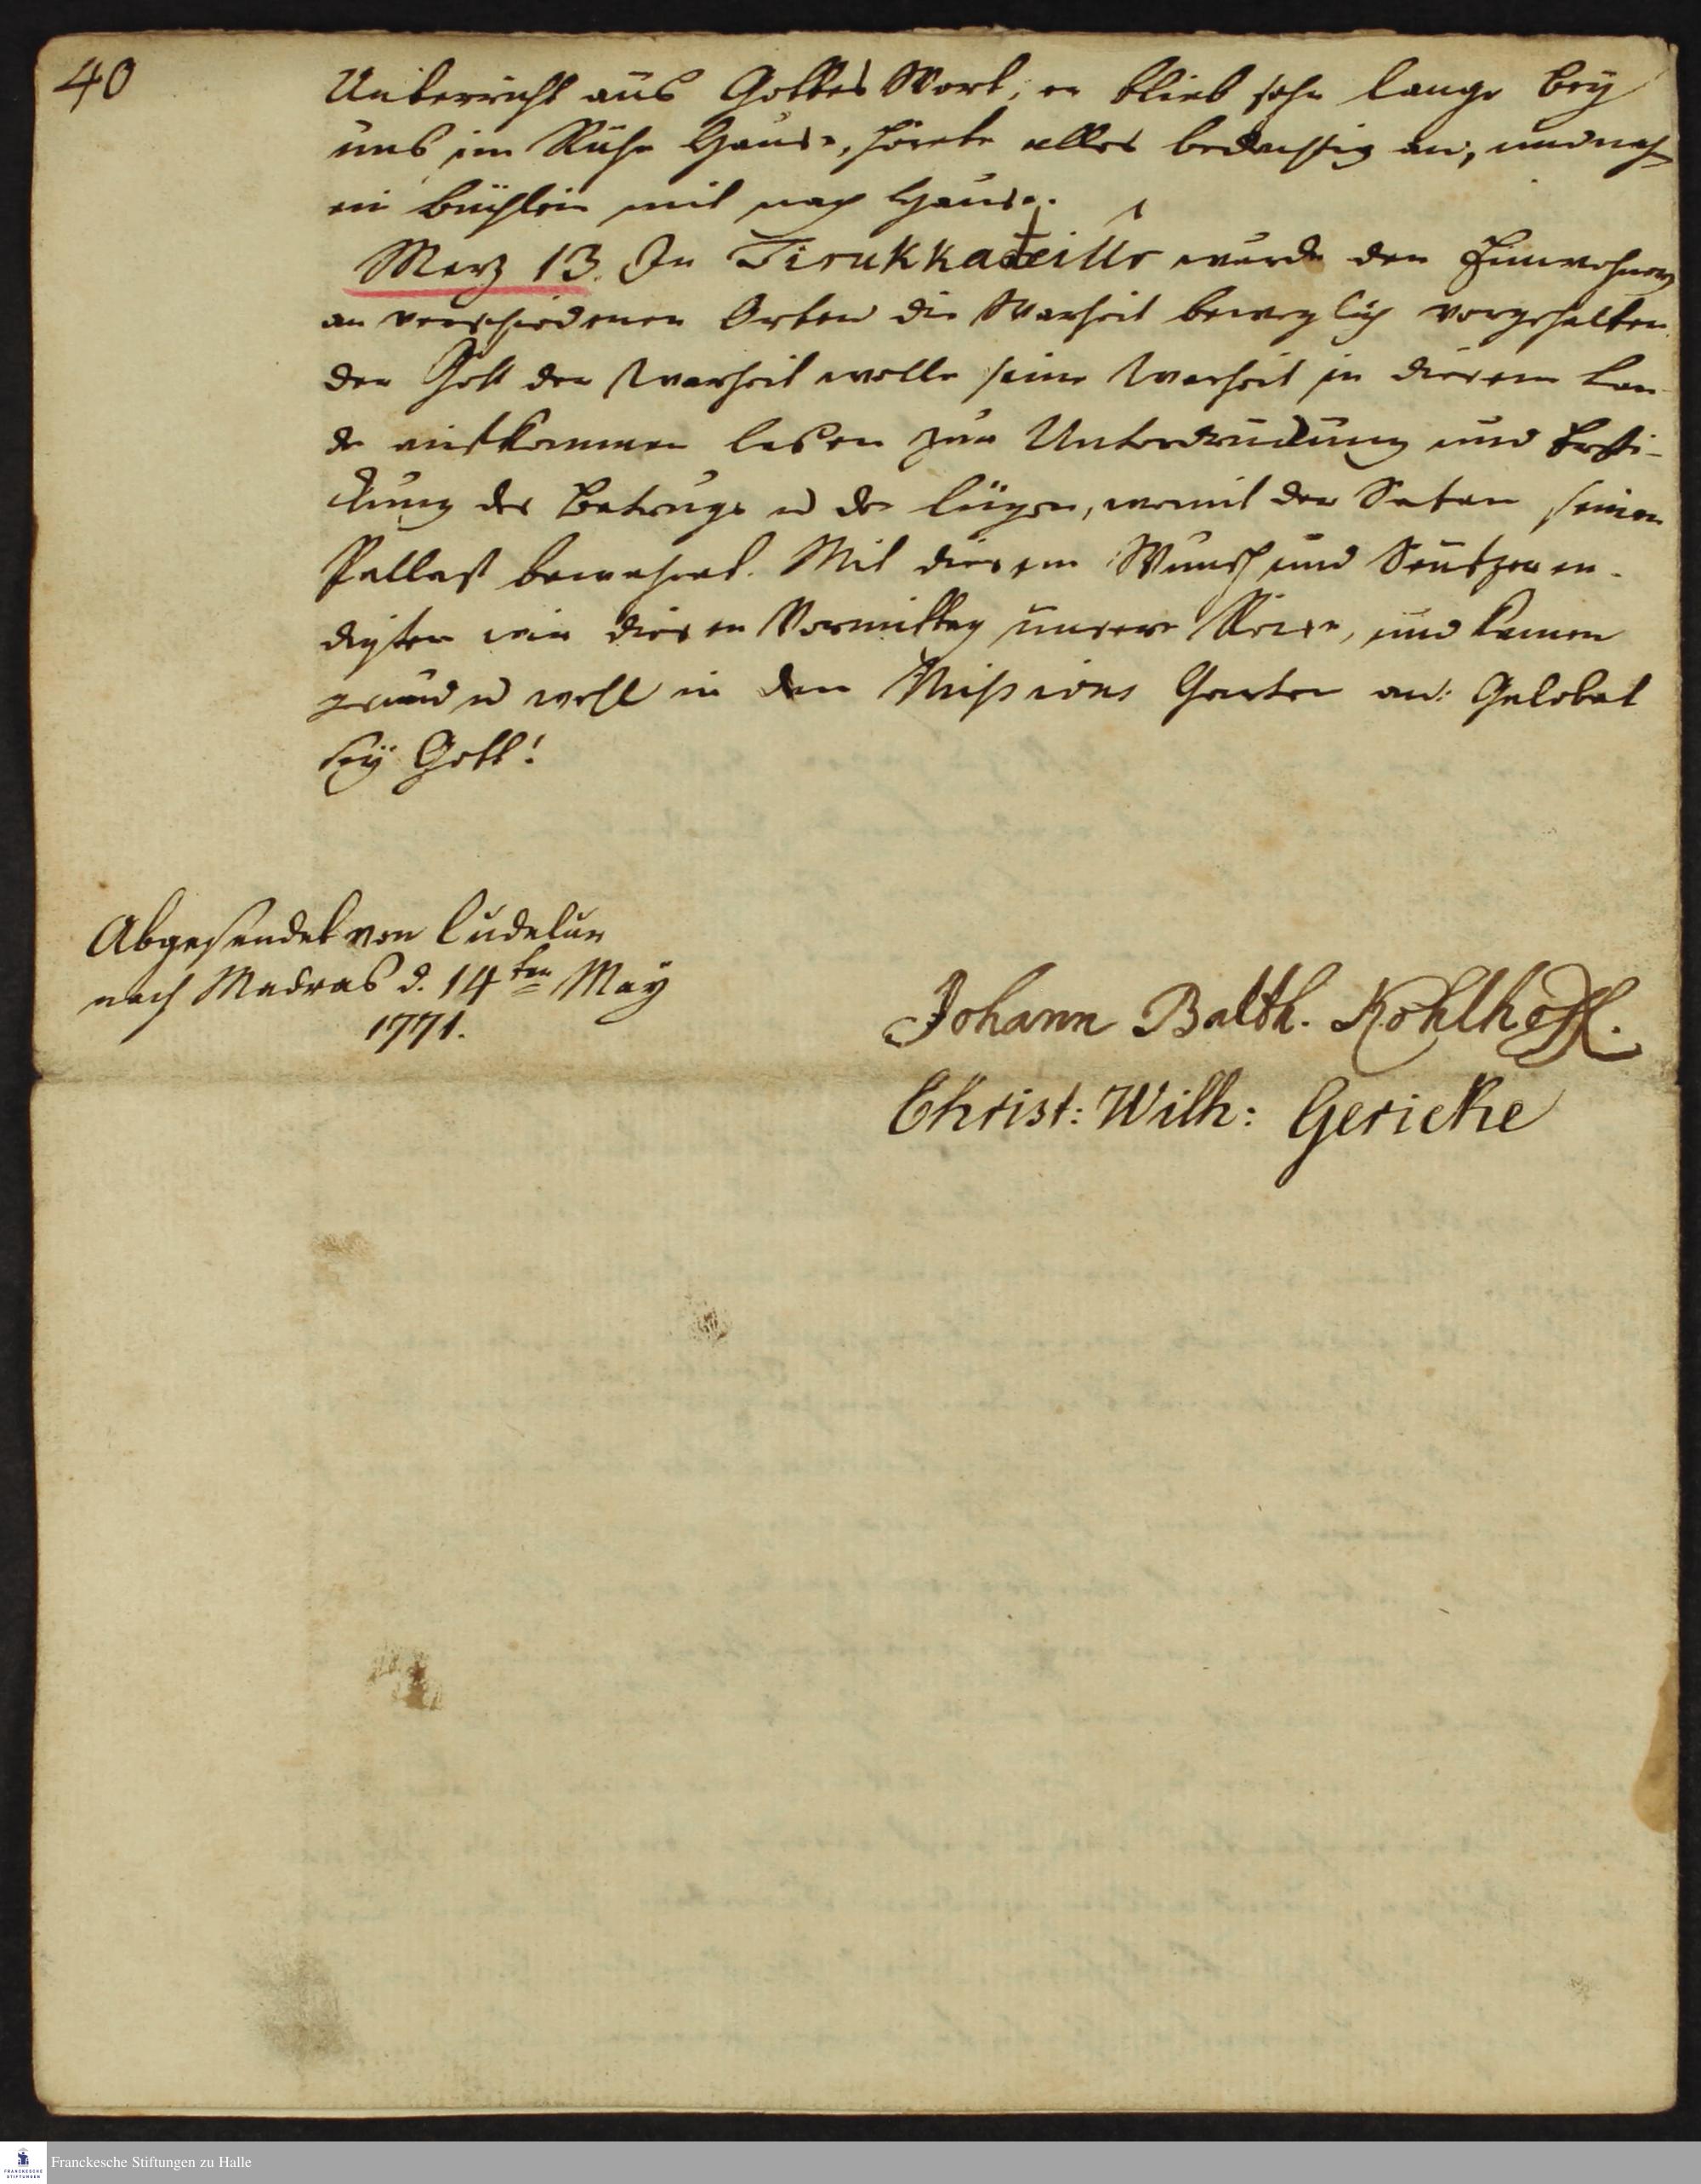 40
Unterricht aus Gottes Wort, er blieb sehr lange bey
uns im Ruhe Hause, hörete alles bedachtig an, und nahm
ein Büchlein mit nach Hause.
Merz 13. In Tirukkadeiur wurde den Einwohnern
an verschiedenen Orten die Warheit beweglich vorgehalten.
der Gott der Warheit wolle seine Warheit in diesem Lan-
de aufkommen laßen zur Unterdrückung und Ersti-
ckung des Betrugs u der Lügen, womit der Satan seinen
Pallast bewahret. Mit diesem Wunsch und Seufzer en-
digten wir diesen Vormittag unsere Reise, und kamen
gesund u wohl in den Missions Garten an: Gelobet
sey Gott!
Abgesendet von Cudelur
nach Madras d. 14ten May
1771.
Johann Balth. Kohlhoff.
Christ: Wilh: Gericke
Franckesche Stiftungen zu Halle